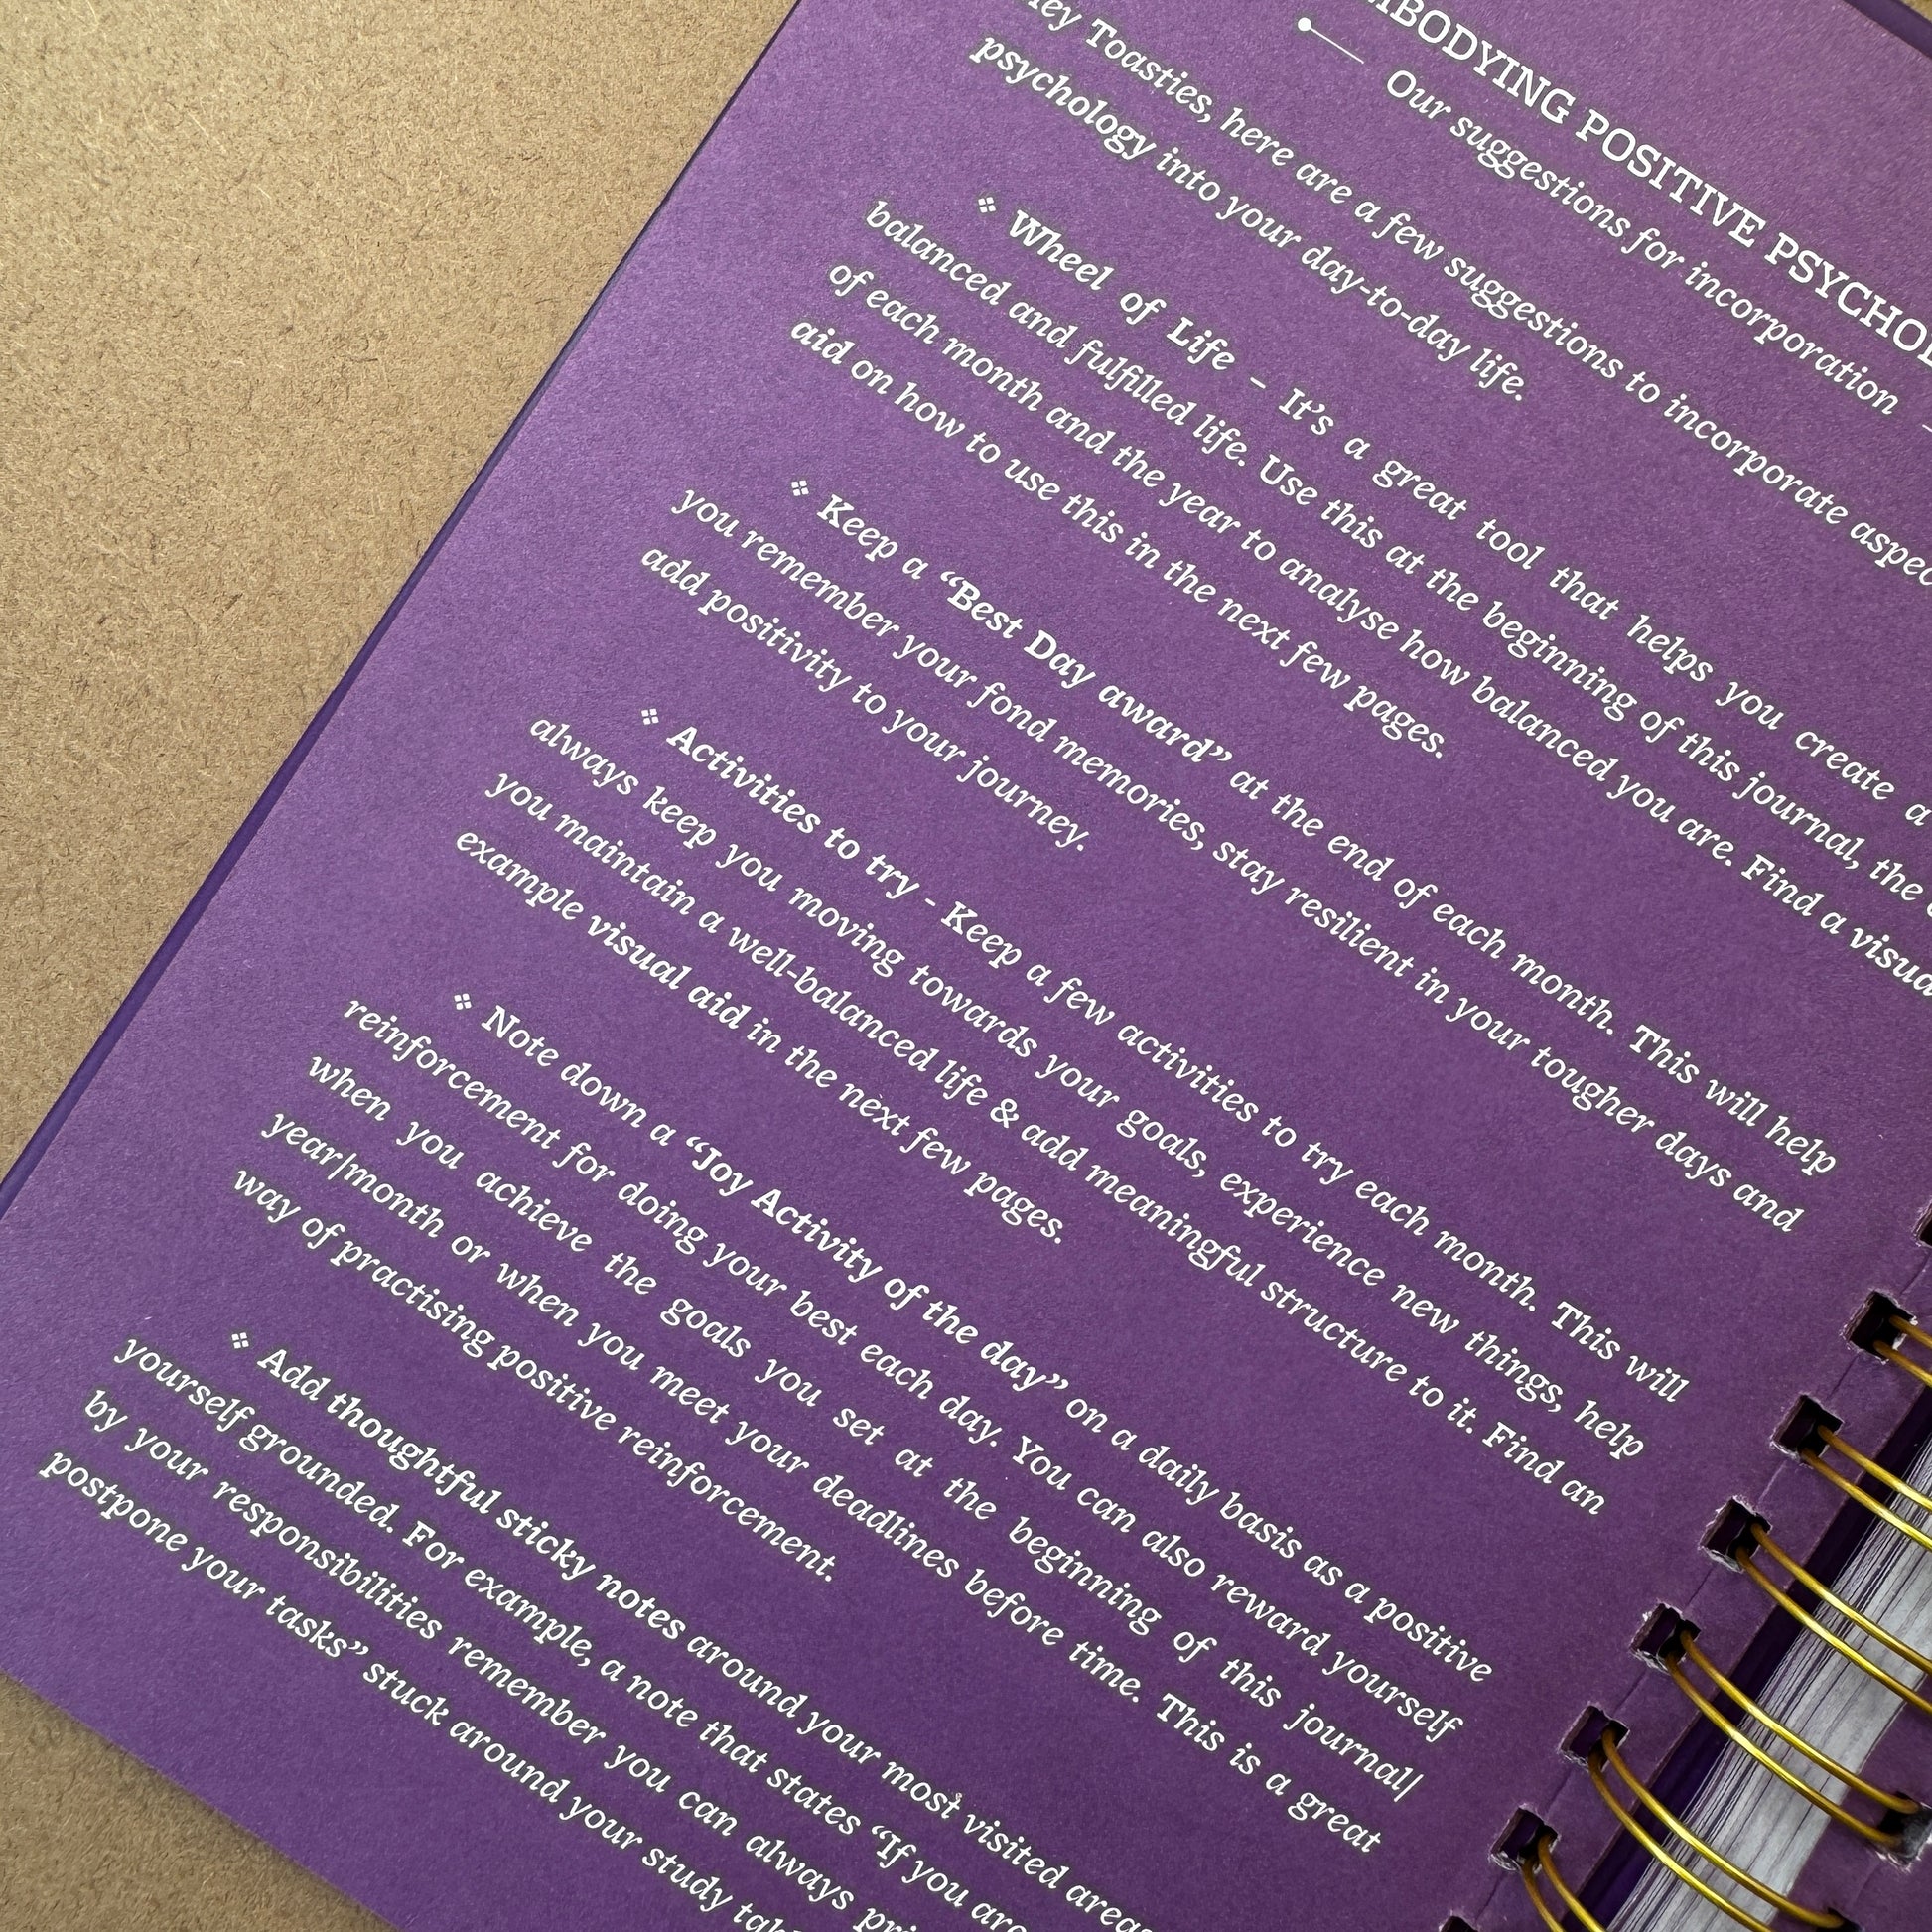 BODYING POSITIVE PSYCHO
Our suggestions for incorporation
Toasties, here are a few suggestions to incorporate
psychology into your day-to-day life.
❖ Wheel of Life – It's a great tool that helps you create a
balanced and fulfilled life. Use this at the beginning of this journal, the
of each month and the year to analyse how balanced you are. Find a visual
aid on how to use this in the next few pages.
❖ Keep a “Best Day award” at the end of each month. This will help
you remember your fond memories, stay resilient in your tougher days and
add positivity to your journey.
❖ Activities to try - Keep a few activities to try each month. This will
always keep you moving towards your goals, experience new things, help
you maintain a well-balanced life & add meaningful structure to it. Find an
example visual aid in the next few pages.
❖ Note down a “Joy Activity of the day” on a daily basis as a positive
reinforcement for doing your best each day. You can also reward yourself
when you achieve the goals you set at the beginning of this journal/
year/month or when you meet your deadlines before time. This is a great
way of practising positive reinforcement.
❖ Add thoughtful sticky notes around your most visited areas
yourself grounded. For example, a note that states “If you are
by your responsibilities remember you can always
postpone your tasks” stuck around your study